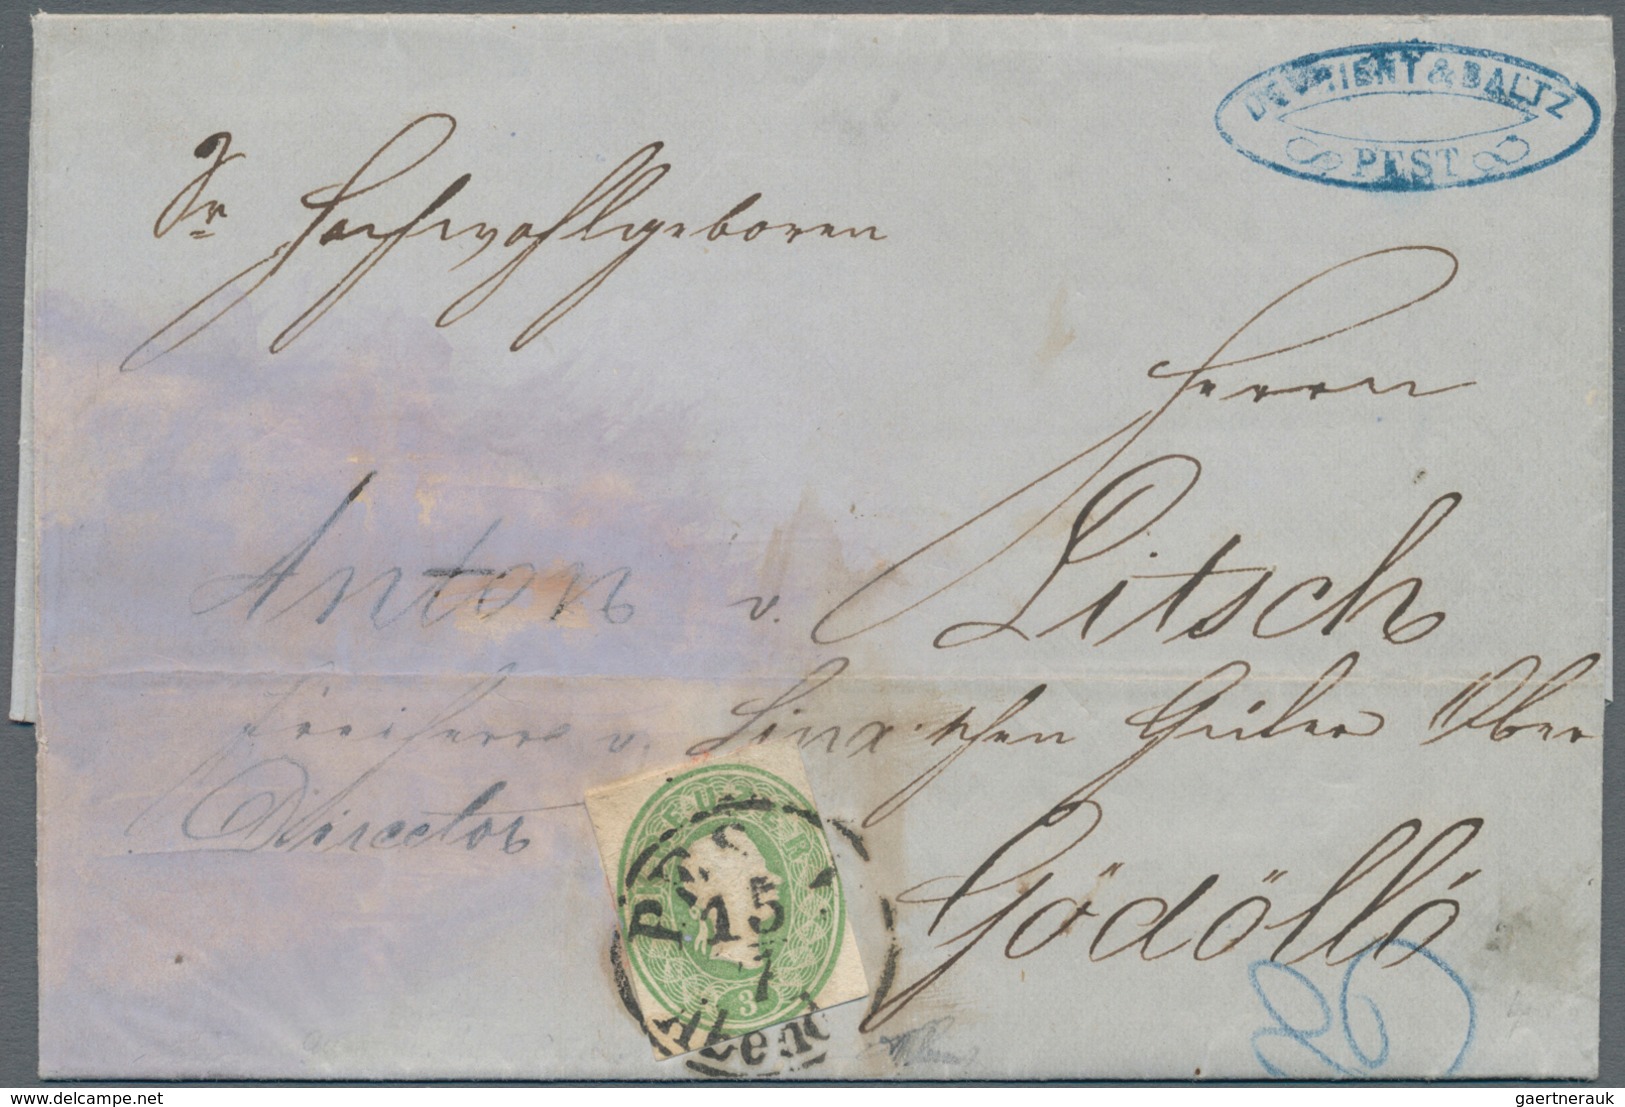 DEVRIENT & BALTZ
PEST
Sr Hochwohlgeboren
Herrn
Anton v. Litsch
Freiherr v. Sina'schen Güter Ober
Director
Gödöllő
PEST
15
7
Abends
3
delcampe.net
gaertnerauk